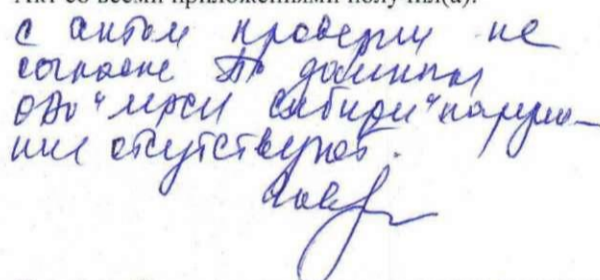 Акт со всеми приложениями получил(а):
с актом проверки не
согласие По данным
ОАО "мрси сибири" наруше-
ние отсутствуют.